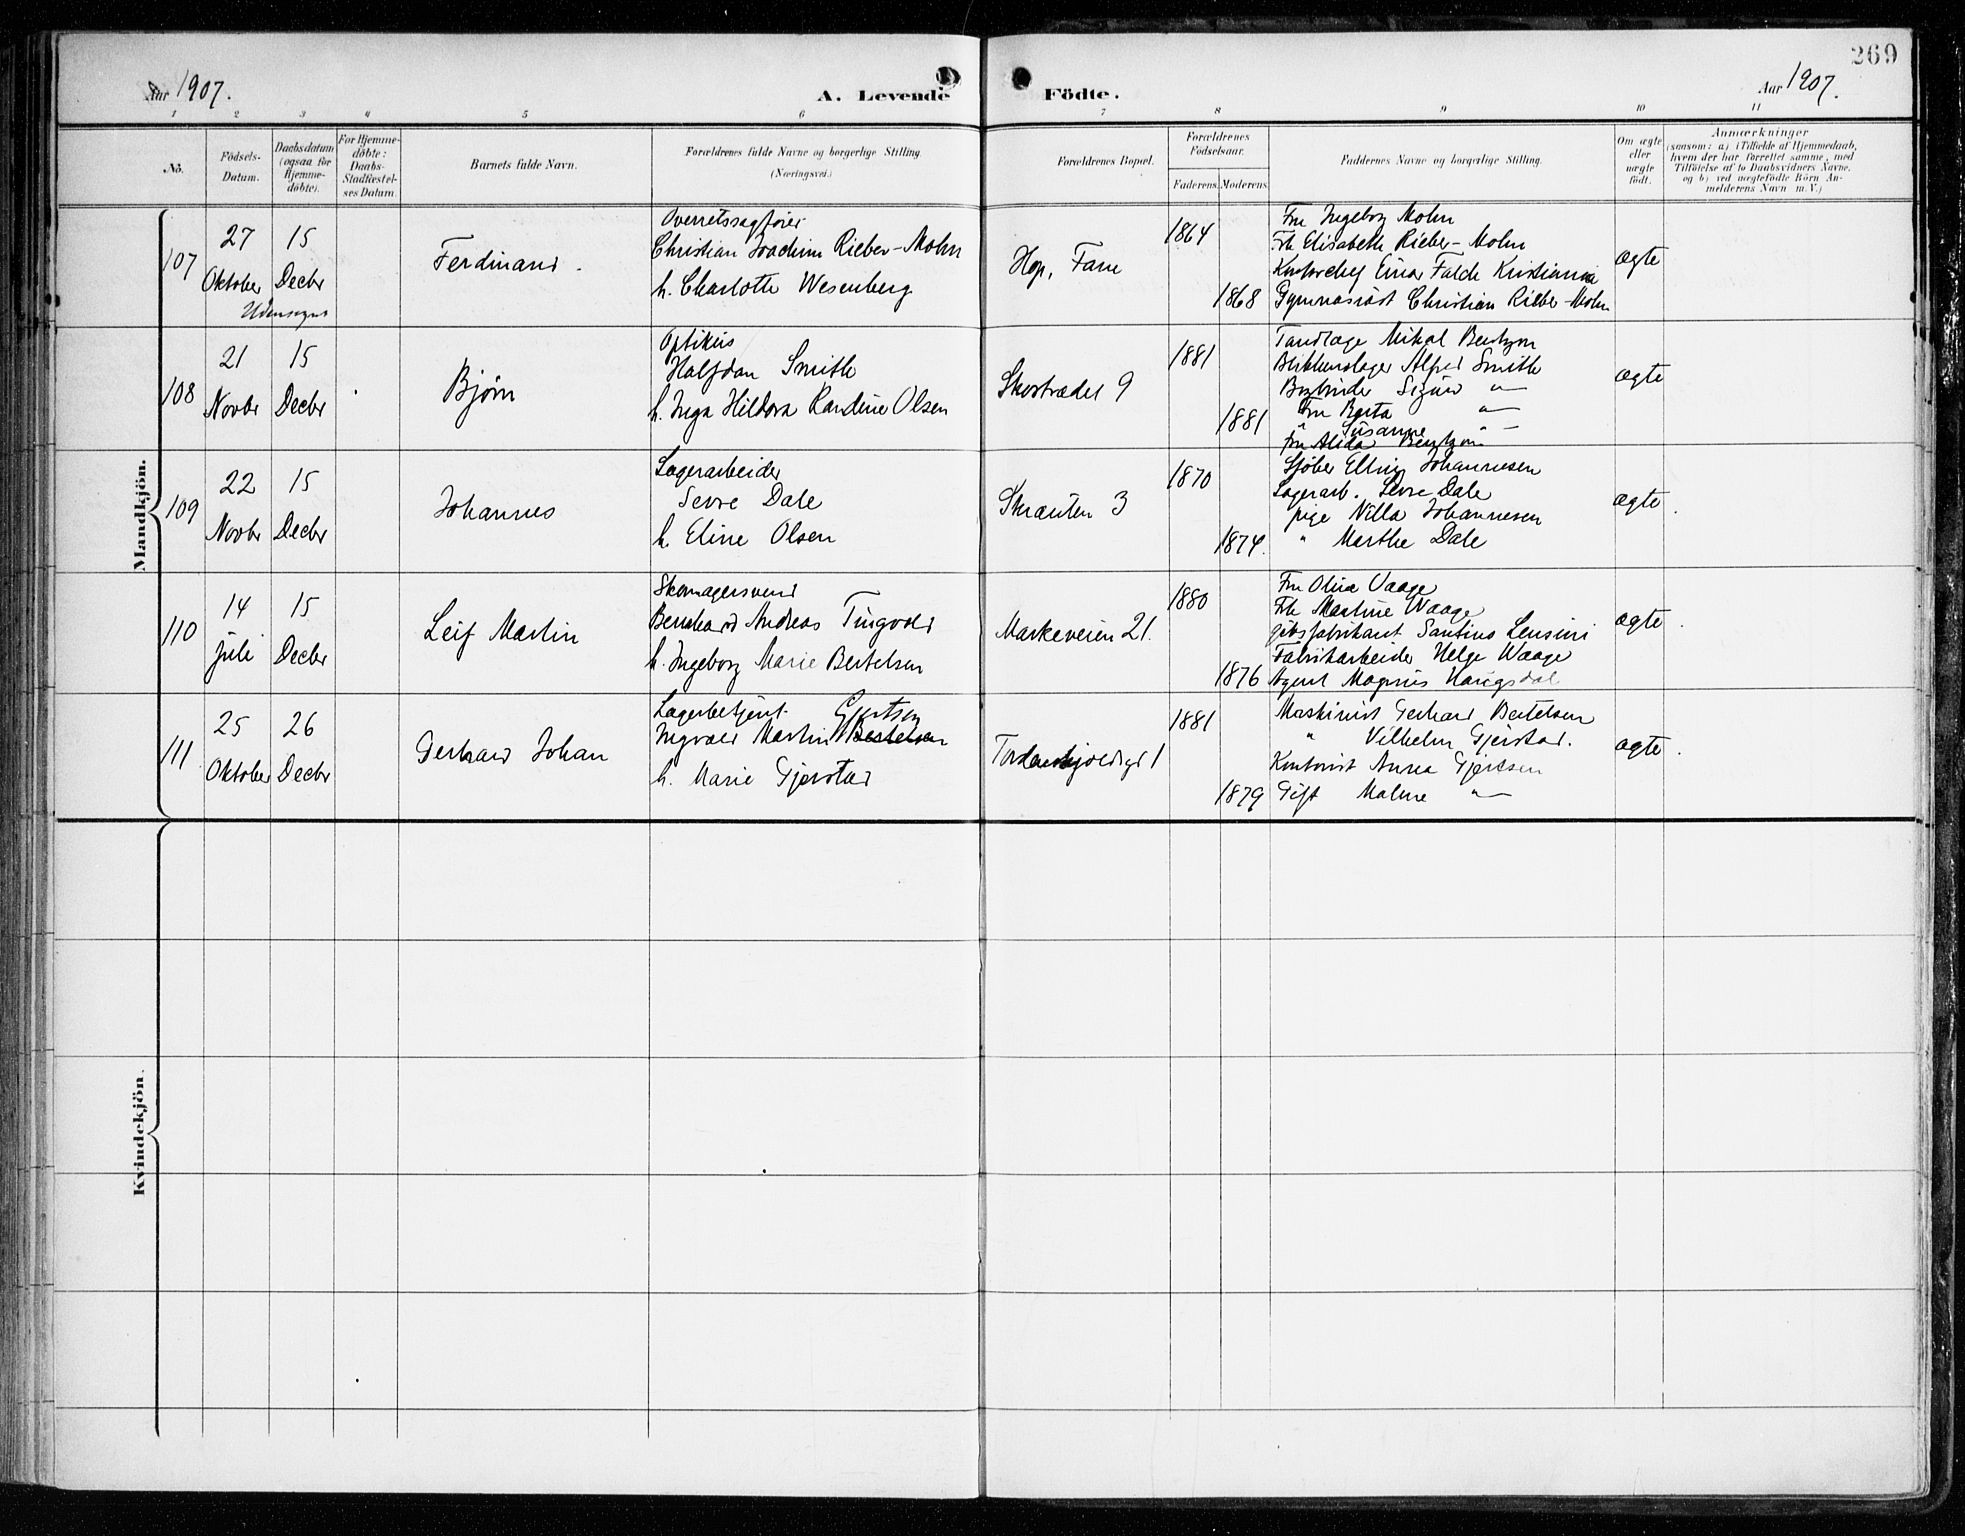 269
Aar 1907.
A. Levende Födte.
Aar 1907.
1 2 3 4 5 6 7 8 9 10 11
No.
Födsels-Datum.
Daabsdatum (ogsaa for Hjemme-döbte).
For Hjemme-döbte: Daabs-Stadfæstel-ses Datum.
Barnets fulde Navn.
Forældrenes fulde Navne og borgerlige Stilling.
(Næringsvei.)
Forældrenes Bopæl.
Forældrenes Födselsaar.
Faderens. Moderens.
Faddernes Navne og borgerlige Stilling.
Om ægte eller uægte födt.
Anmærkninger
(saasom: a) i Tilfælde af Hjemmedaab,
hvem der har forrettet samme, med
Tilföielse af to Daabsvidners Navne,
og b) ved uægtefödte Börn An-
melderens Navn m. V.)
Mandkjön.
107
27 Oktober
15 Decbr
Udensogns
Ferdinand.
Overretssagfører
Christian Joachim Rieber-Mohn
h. Charlotte Wesenberg
Hop, Fane
1864
1868
Fru Ingeborg Mohn
Frk Elisabeth Rieber-Mohn
Kontorchef Einar Falck Kristiania
Gymnasiast Christian Rieber-Mohn
ægte
108
21 Novbr
15 Decbr
Bjørn
Optikus
Halfdan Smith
h. Inga Hildora Randine Olsen
Skostrædet 9
1881
1881
Tandlæge Mikal Bentzon
Blikkenslager Alfred Smith
Bogbinder Sigurd "
Fru Berta "
" Susanne "
Fru Alida Bentzon
ægte
109
22 Novbr
15 Decbr
Johannes
Lagerarbeider
Sevre Dale
h. Eline Olsen
Skranten 3
1870
1874.
Elling Johannesen
Lagerarb. Sevre Dale
pige Villa Johannesen
" Marthe Dale
ægte.
110
14 juli
15 Decbr
Leif Martin
Skomagersvend
Bernhard Andreas Tingvold
h. Ingeborg Marie Bertelsen
Markeveien 21.
1880
1876
Fru Olina Vaage
Frk Martine Waage
gibsfabrikant Santino Lensini
Fabrikarbeider Helge Waage
Agent Magnus Haugsdal
ægte.
111
25 Oktober
26 Decbr
Gerhard Johan
Lagerbetjent Gjertsen
Ingvald Martin Bertelsen
h. Marie Gjerstad
Tordenskjoldsgd 1
1881
1879
Maskinist Gerhard Bertelsen
" Vilhelm Gjerstad.
Kontorist Anna Gjertsen
Gift Malene "
ægte.
Kvindekjön.